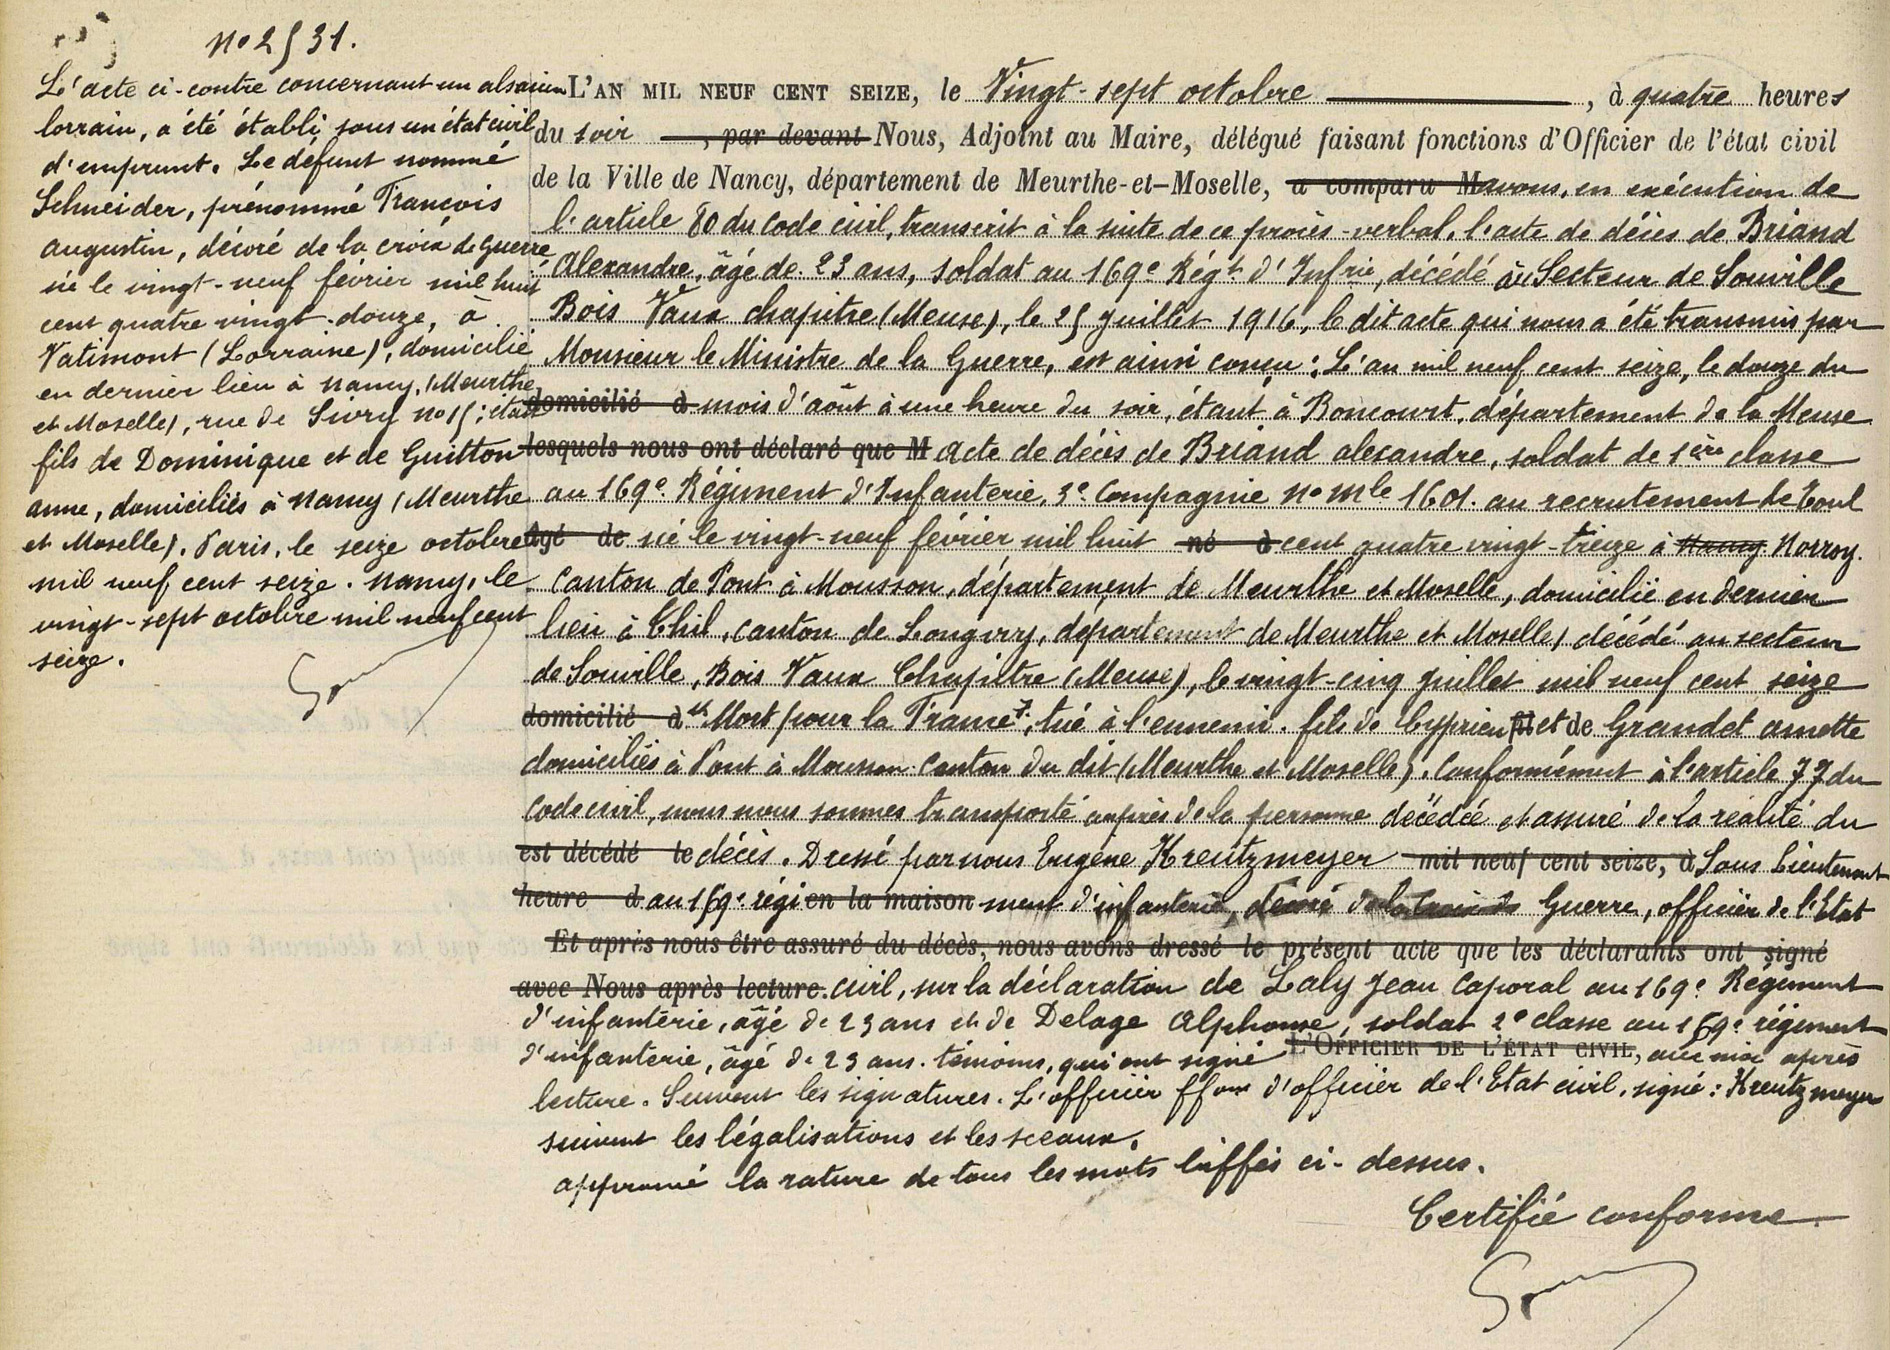 nº 2531.
L'acte ci-contre concernant un alsacien
lorrain, a été établi sous un état civil
d'emprunt. Le défunt nommé
Schneider, prénommé François
augustin, décoré de la croix de guerre
né le vingt-neuf février mil huit
cent quatre vingt-douze, à
Vatimont (Lorraine), domicilié
en dernier lieu à nancy, (Meurthe
et Moselle), rue de Sivry nº 15; était
fils de Dominique et de Guitton
anne, domiciliés à nancy (Meurthe
et Moselle). Paris, le seize octobre
mil neuf cent seize. nancy, le
vingt-sept octobre mil neuf cent
seize.
L'AN MIL NEUF CENT SEIZE, le Vingt-sept octobre, à quatre heures
du soir, par devant Nous, Adjoint au Maire, délégué faisant fonctions d'Officier de l'état civil
de la Ville de Nancy, département de Meurthe-et-Moselle, a comparu M avons, en exécution de
l'article 80 du Code civil, transcrit à la suite de ce procès-verbal, l'acte de décès de Briand
Alexandre, âgé de 23 ans, soldat au 169e Régt d'Infrie, décédé au Secteur de Souville
Bois Vaux chapitre (Meuse), le 25 juillet 1916, le dit acte qui nous a été transmis par
Monsieur le Ministre de la Guerre, est ainsi conçu: L'an mil neuf cent seize, le douze du
domicilié à mois d'août à une heure du soir, étant à Boncourt, département de la Meuse
lesquels nous ont déclaré que M Acte de décès de Briand alexandre, soldat de 1ère classe
au 169e Régiment d'Infanterie, 3e Compagnie nº mle 1601. au recrutement de Toul
âgé de né le vingt-neuf février mil huit né à cent quatre vingt-treize à Nancy Norroy.
Canton de Pont à Mousson, département de Meurthe et Moselle, domicilié en dernier
lieu à Thil, canton de Longwy, département de Meurthe et Moselle) décédé au secteur
de Souville, Bois Vaux Chapitre (Meuse), le vingt-cinq juillet mil neuf cent seize
domicilié à "Mort pour la France", tué à l'ennemi. fils de Cyprien fil et de Grandet annette
domiciliés à Pont à Mousson canton du dit (Meurthe et Moselle). Conformément à l'article 77 du
code civil, nous nous sommes transporté auprès de la personne décédée et assuré de la réalité du
est décédé le décès. Dressé par nous Eugène Kreutzmeyer mil neuf cent seize, à Sous Lieutenant
heure d au 169e régi en la maison ment d'infanterie, décoré de la croix de Guerre, officier de l'Etat
Et après nous être assuré du décès, nous avons dressé le présent acte que les déclarants ont signé
avec Nous après lecture. civil, sur la déclaration de Laly Jean Caporal au 169e Régiment
d'infanterie, âgé de 23 ans et de Delage Alphonse, soldat 2e classe au 169e régiment
d'infanterie, âgé de 23 ans. témoins, qui ont signé L'OFFICIER DE L'ÉTAT CIVIL, avec moi après
lecture. Suivent les signatures. L'officier ffons d'officier de l'Etat civil, signé: Kreutzmeyer
suivent les légalisations et les sceaux.
approuvé la rature de tous les mots biffés ci-dessus.
Certifié conforme